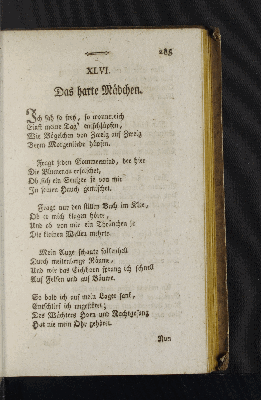 285
XLVI.
Das harte Mädchen.
Ich sah so frey, so wonnereich
Einst meine Tag' entschlüpfen,
Wie Vögelchen von Zweig auf Zweig
Beym Morgenliede hüpfen.
Fragt jeden Sommerwind, der hier
Die Blumenau erfrischet,
Ob sich ein Seufzer je von mir
In seinen Hauch gemischet.
Fragt nur den stillen Bach im Klee,
Ob er mich klagen hörte,
Und ob von mir ein Thränchen je
Die kleinen Wellen mehrte.
Mein Auge schaute falkenhell
Durch meilenlange Räume,
Und wie das Eichhorn sprang ich schnell
Auf Felsen und auf Bäume.
So bald ich auf mein Lager sank,
Entschlief ich ungestöret;
Des Wächters Horn und Nachtgesang
Hat nie mein Ohr gehöret.
Nun